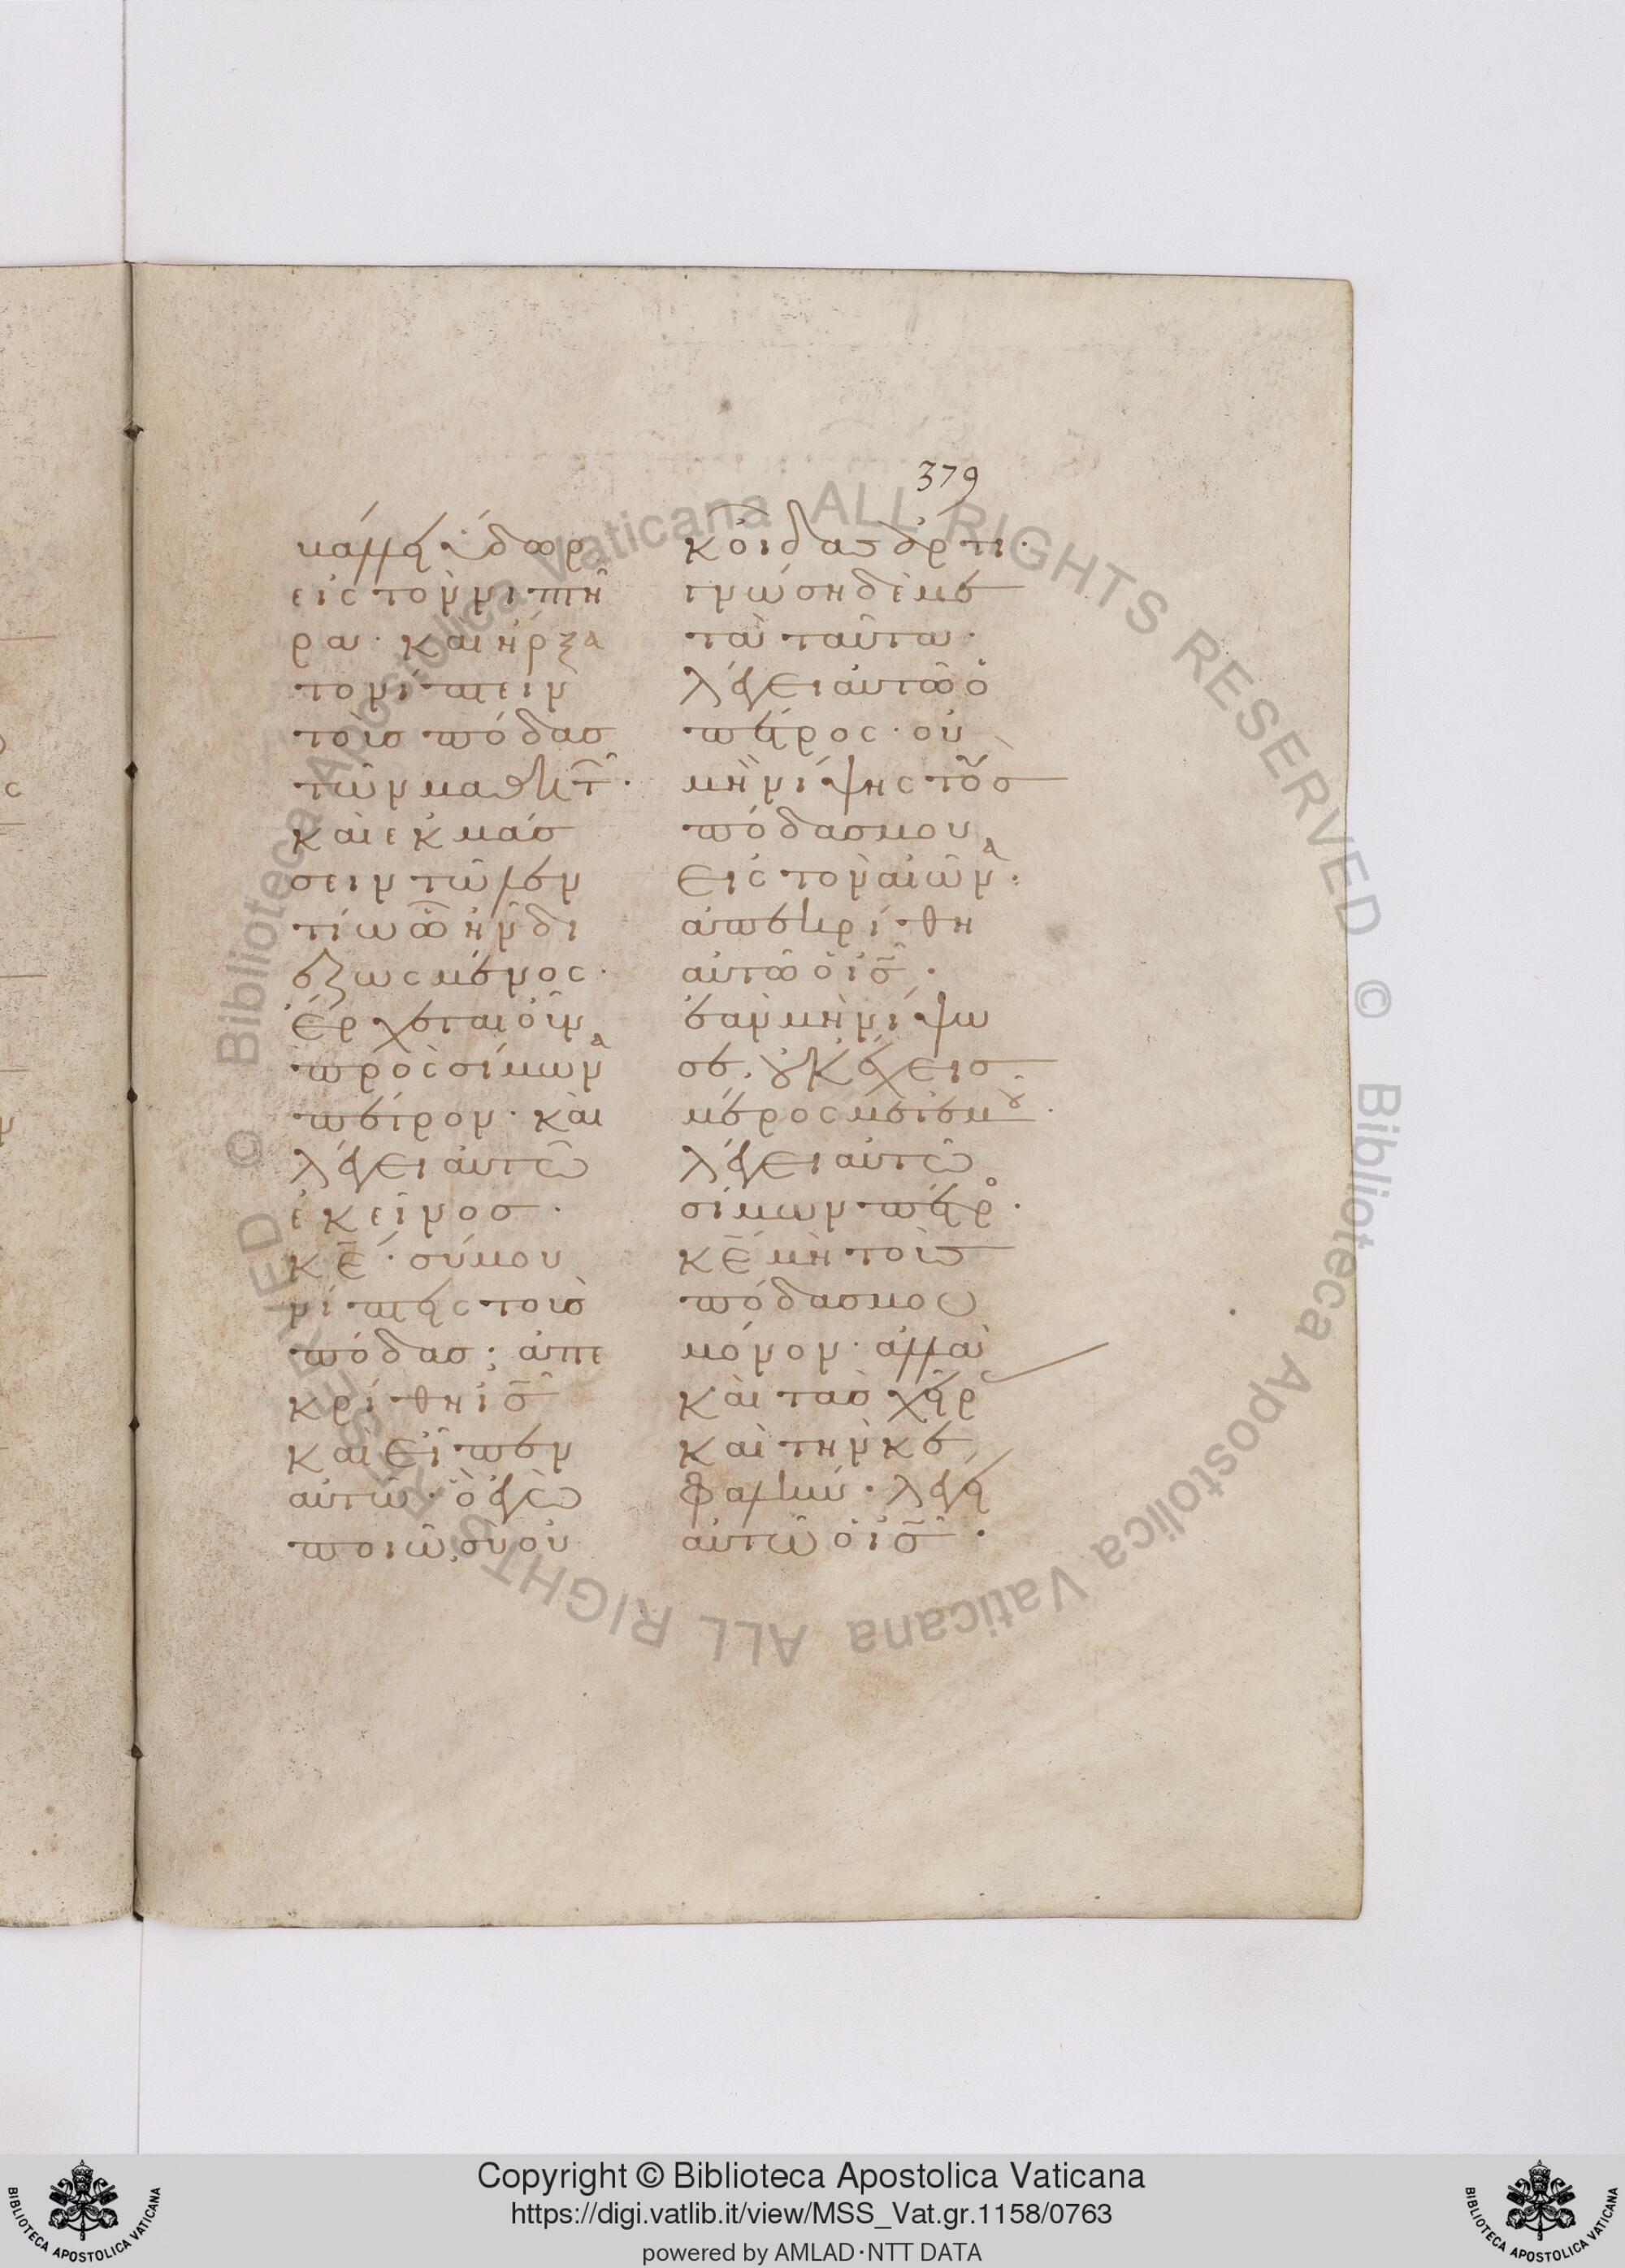 379
κάλλει ὕδωρ
εἰς τὸν νιπτῆ
ρα· καὶ ἤρξα
το νίπτειν
τοὺς πόδας
τῶν μαθητ̑·
καὶ ἐκμάσ
σειν τῶ λεν
τίω ὧ ἦν δι
εζωσμένος·
ἔρχεται οὖν
πρὸς σίμωνα
πέτρον· καὶ
λέγει αὐτῶ
ἐκεῖνος·
κ̅ε̅· σύ μου
νίπτεις τοὺς
πόδας; ἀπε
κρίθη ι̅σ̅
καὶ εἶπεν
αὐτῶ· ὃ ἐγὼ
ποιῶ, σὺ οὐ
κ οἶδας ἄρτι·
γνώση δὲ με
τὰ ταῦτα·
λέγει αὐτῶ ὁ
πέτρος· οὐ
μὴ νίψης τοὺς
πόδας μου
εἰς τὸν αἰῶνα·
ἀπεκρίθη
αὐτῶ ὁ ι̅σ̅·
ἐὰν μὴ νίψω
σε, οὐκ ἔχεις
μέρος μετ' ἐμοῦ·
λέγει αὐτῶ
σίμων πέτρο·
κ̅ε̅ μὴ τοὺς
πόδας μου
μόνον· ἀλλὰ
καὶ τὰς χεῖρ
καὶ τὴν κε
φαλήν· λέγει
αὐτῶ ὁ ι̅σ̅·
Copyright © Biblioteca Apostolica Vaticana
https://digi.vatlib.it/view/MSS_Vat.gr.1158/0763
powered by AMLAD·NTT DATA
BIBLIOTECA APOSTOLICA VATICANA
BIBLIOTECA APOSTOLICA VATICANA
© Biblioteca Apostolica Vaticana ALL RIGHTS RESERVED
© Biblioteca Apostolica Vaticana ALL RIGHTS RESERVED